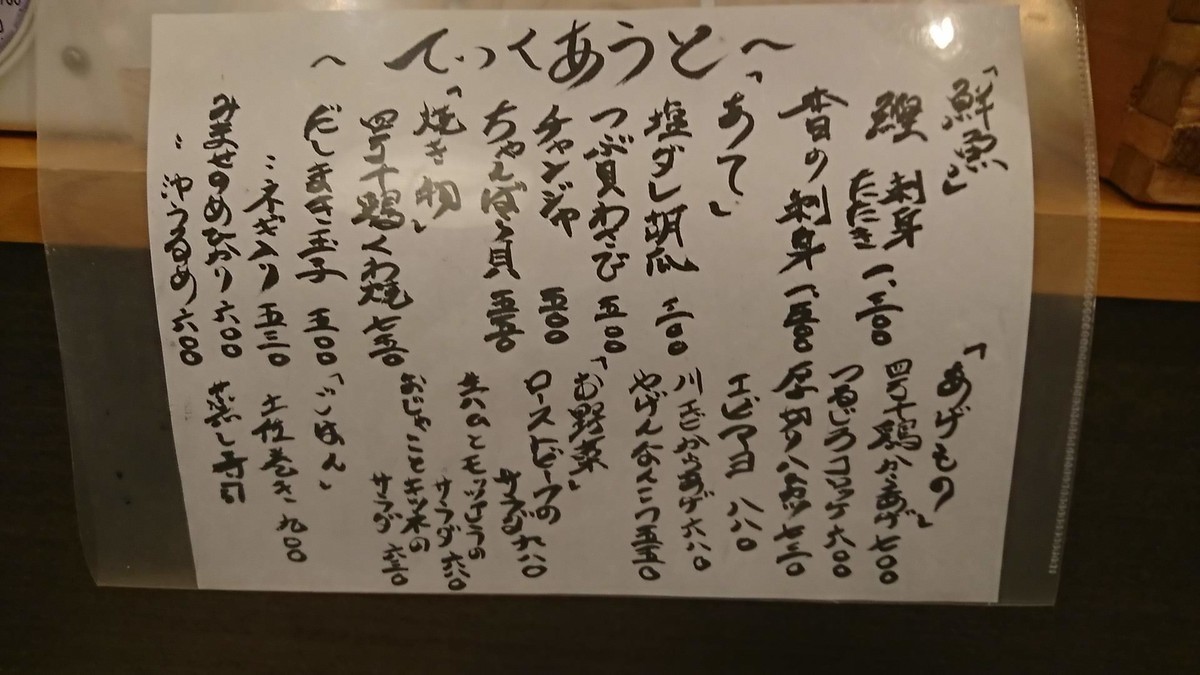 〜てっくあうと〜
「鮮魚」
鰹 刺身
たたき 一、三〇〇
本日の刺身 一、五〇〇
「あて」
塩ダレ胡瓜 三〇〇
つぶ貝わさび 五〇〇
チャンジャ 五〇〇
ちゃんばら貝 五五〇
「焼き物」
四万十鶏くわ焼 七五〇
だしまき玉子 五〇〇
〃 ネギ入り 五三〇
みませのめひかり 六〇〇
〃 沖うるめ 六〇〇
「あげもの」
四万十鶏からあげ 七〇〇
コロッケ 六〇〇
厚切りハムカツ 七三〇
エビマヨ 八八〇
川エビからあげ 六八〇
やげんなんこつ 五五〇
「む野菜」
ローストビーフの
サラダ 九八〇
生ハムとモッツァレラの
サラダ
おじゃことキツネの
サラダ 六三〇
「ごはん」
土佐巻き 九〇〇
蒸し寿司